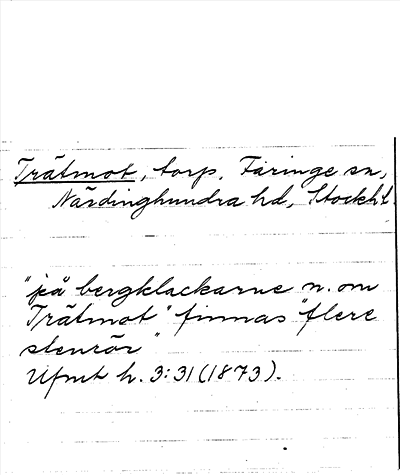 Trätmot, torp, Faringe sn,
Närdinghundra hd, Stockh.l.
"på bergklackarne n. om
Trätmot" finnas "flere
stenrör"
Ufmt h. 3:31 (1873).